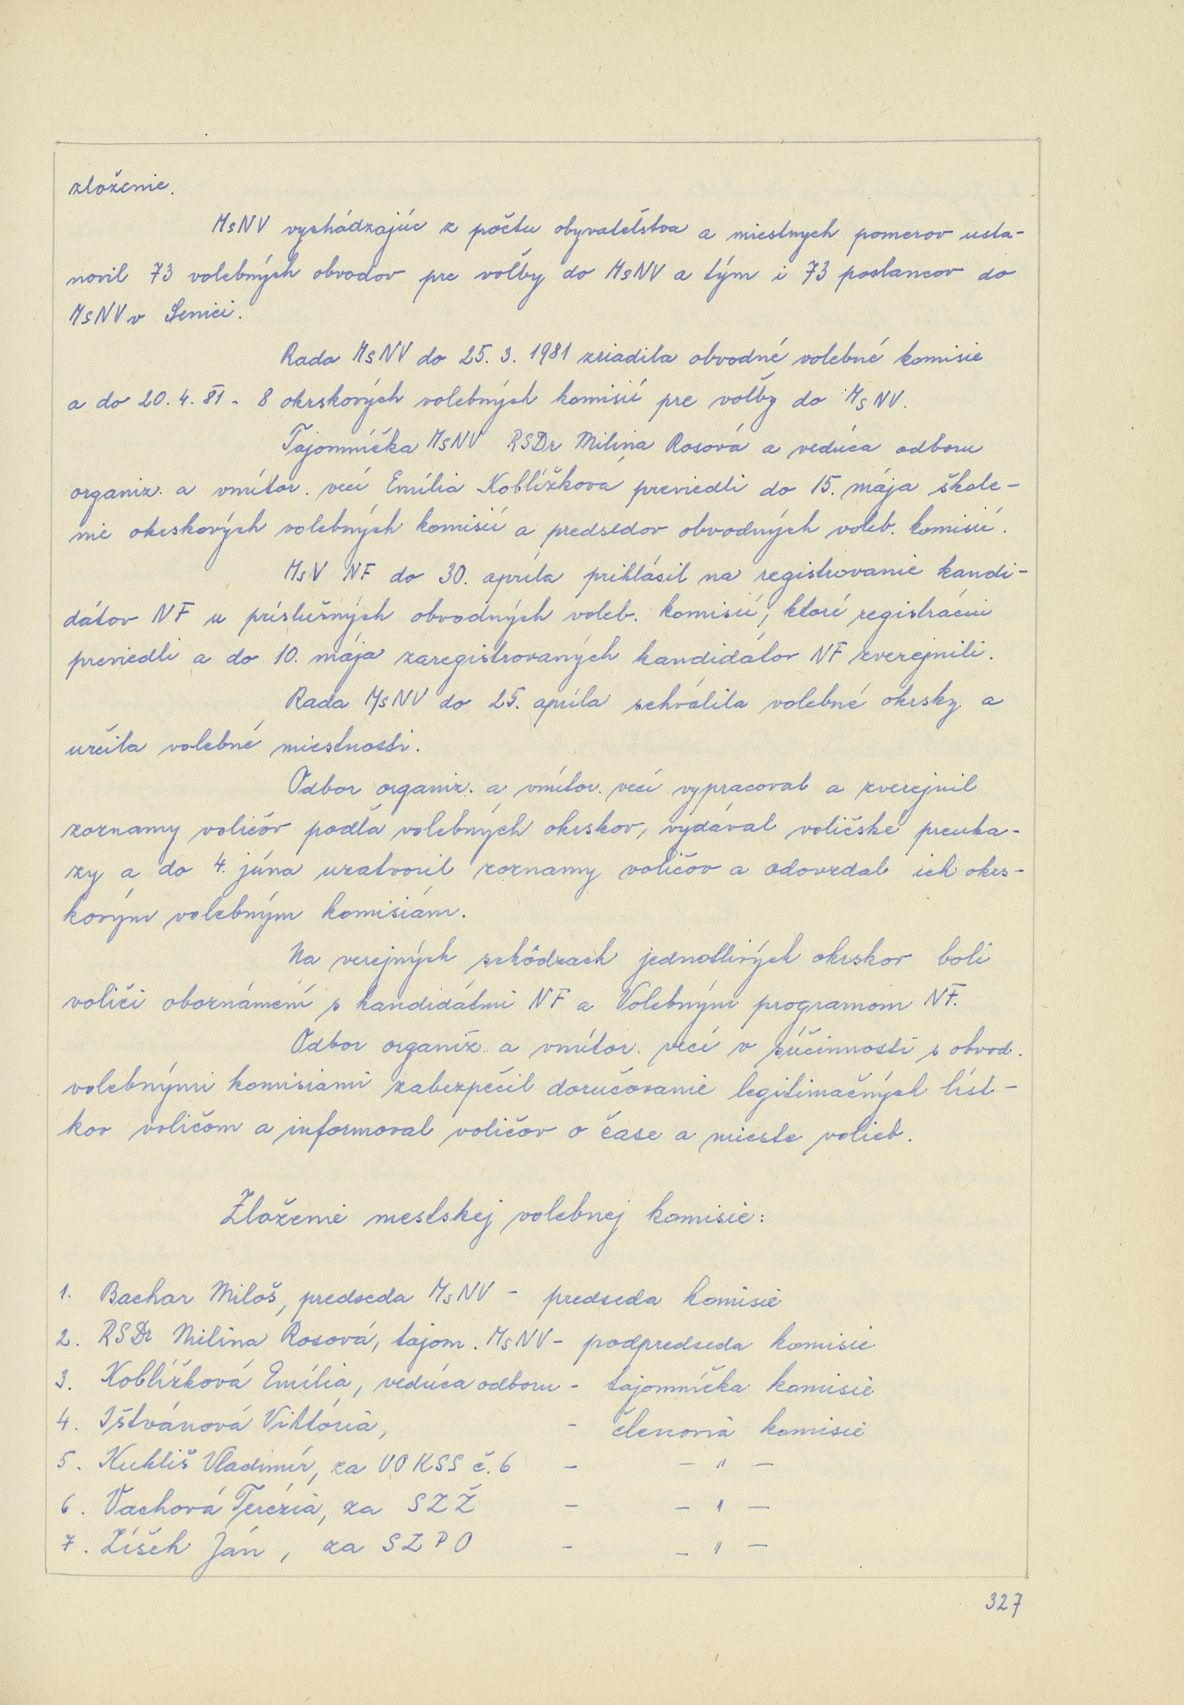 zloženie.
MsNV vychádzajúc z počtu obyvateľstva a miestnych pomerov usta-
novil 73 volebných obvodov pre voľby do MsNV a tým i 73 poslancov do
MsNV v Senici.
Rada MsNV do 25. 3. 1981 zriadila obvodné volebné komisie
a do 20. 4. 81 - 8 okrskových volebných komisií pre voľby do MsNV.
Tajomníčka MsNV RSDr Milina Rosová a vedúca odboru
organiz. a vnútor. vecí Emília Koblížková previedli do 15. mája škole-
nie okrskových volebných komisií a predsedov obvodných voleb. komisií.
MsV NF do 30. apríla prihlásil na registrovanie kandi-
dátov NF u príslušných obvodných voleb. komisií, ktoré registráciu
previedli a do 10. mája zaregistrovaných kandidátov NF zverejnili.
Rada MsNV do 25. apríla schválila volebné okrsky a
určila volebné miestnosti.
Odbor organiz. a vnútor. vecí vypracoval a zverejnil
zoznamy voličov podľa volebných okrskov, vydával voličské preuka-
zy a do 4. júna uzatvoril zoznamy voličov a odovzdal ich okrs-
kovým volebným komisiám.
Na verejných schôdzach jednotlivých okrskov boli
voliči oboznámení s kandidátmi NF a Volebným programom NF.
Odbor organiz. a vnútor. vecí v súčinnosti s obvod.
volebnými komisiami zabezpečil doručovanie legitimačných líst-
kov voličom a informoval voličov o čase a mieste volieb.
Zloženie mestskej volebnej komisie:
1. Bachar Miloš, predseda MsNV - predseda komisie
2. RSDr Milina Rosová, tajom. MsNV - podpredseda komisie
3. Koblížková Emília, vedúca odboru - tajomníčka komisie
4. Ištvánová Viktória, - členovia komisie
5. Kukliš Vladimír, za VOKSS č. 6 - - " -
6. Vachová Terézia, za SZŽ - - " -
7. Líšek Ján, za SZPO - - " -
327